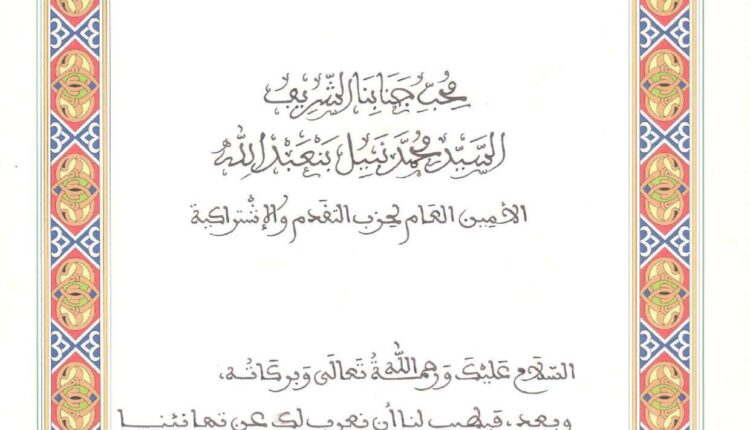 محب جنابنا الشريف
السيد محمد نبيل بنعبد الله
الأمين العام لحزب التقدم والإشتراكية
السلام عليك ورحمة الله تعالى وبركاته،
وبعد، فيطيب لنا أن نعرب لك عن تهانئنا